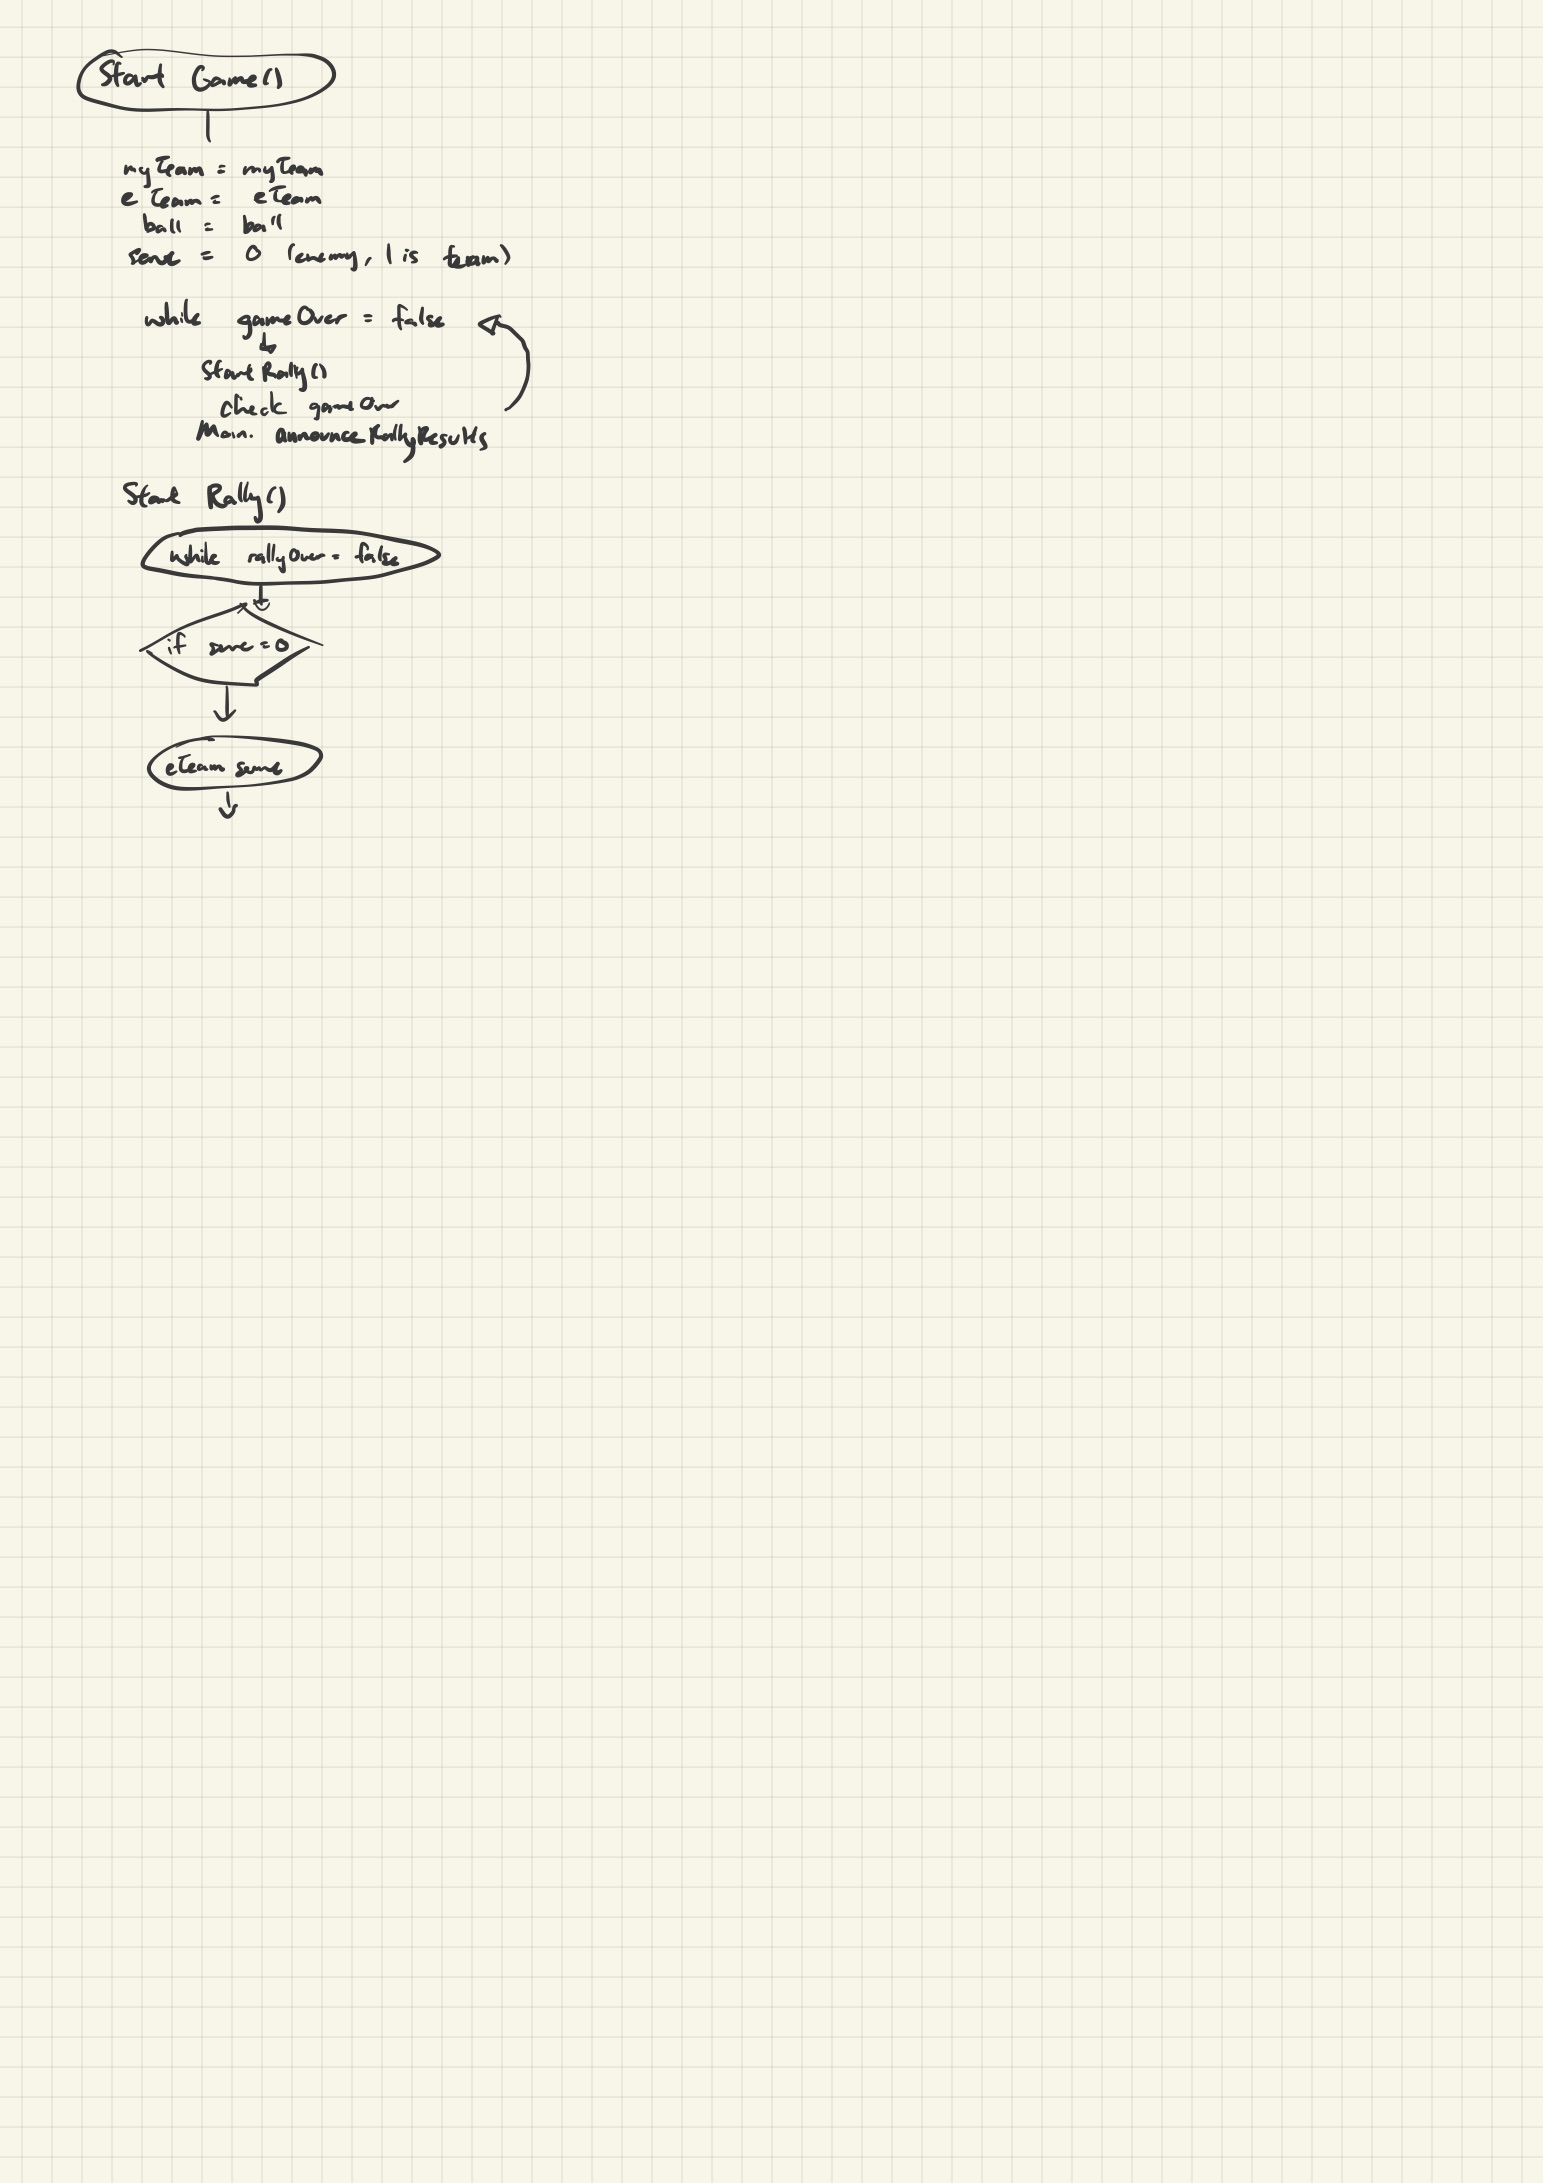 Start Game()
myTeam = myTeam
eTeam = eTeam
ball = ball
serve = 0 (enemy, 1 is team)
while gameOver = false
StartRally()
check gameOver
Main. announceRallyResults
Start Rally()
while rallyOver = false
if serve = 0
eTeam serve